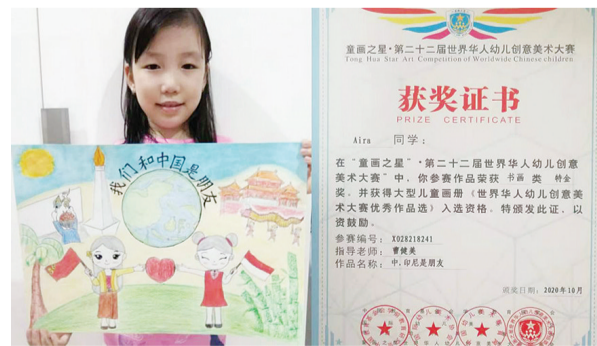 我们和中国是朋友
童画之星·第二十二届世界华人幼儿创意美术大赛
Tong Hua Star Art Competition of Worldwide Chinese children
获奖证书
PRIZE CERTIFICATE
Aira 同学：
在“童画之星”·第二十二届世界华人幼儿创意
美术大赛”中，你参赛作品荣获 书画 类 特金
奖，并获得大型儿童画册《世界华人幼儿创意美
术大赛优秀作品选》入选资格，特颁发此证，以
资鼓励。
参赛编号：X028218241
指导老师：曹健美
作品名称：中，印尼是朋友
颁奖日期：2020年10月